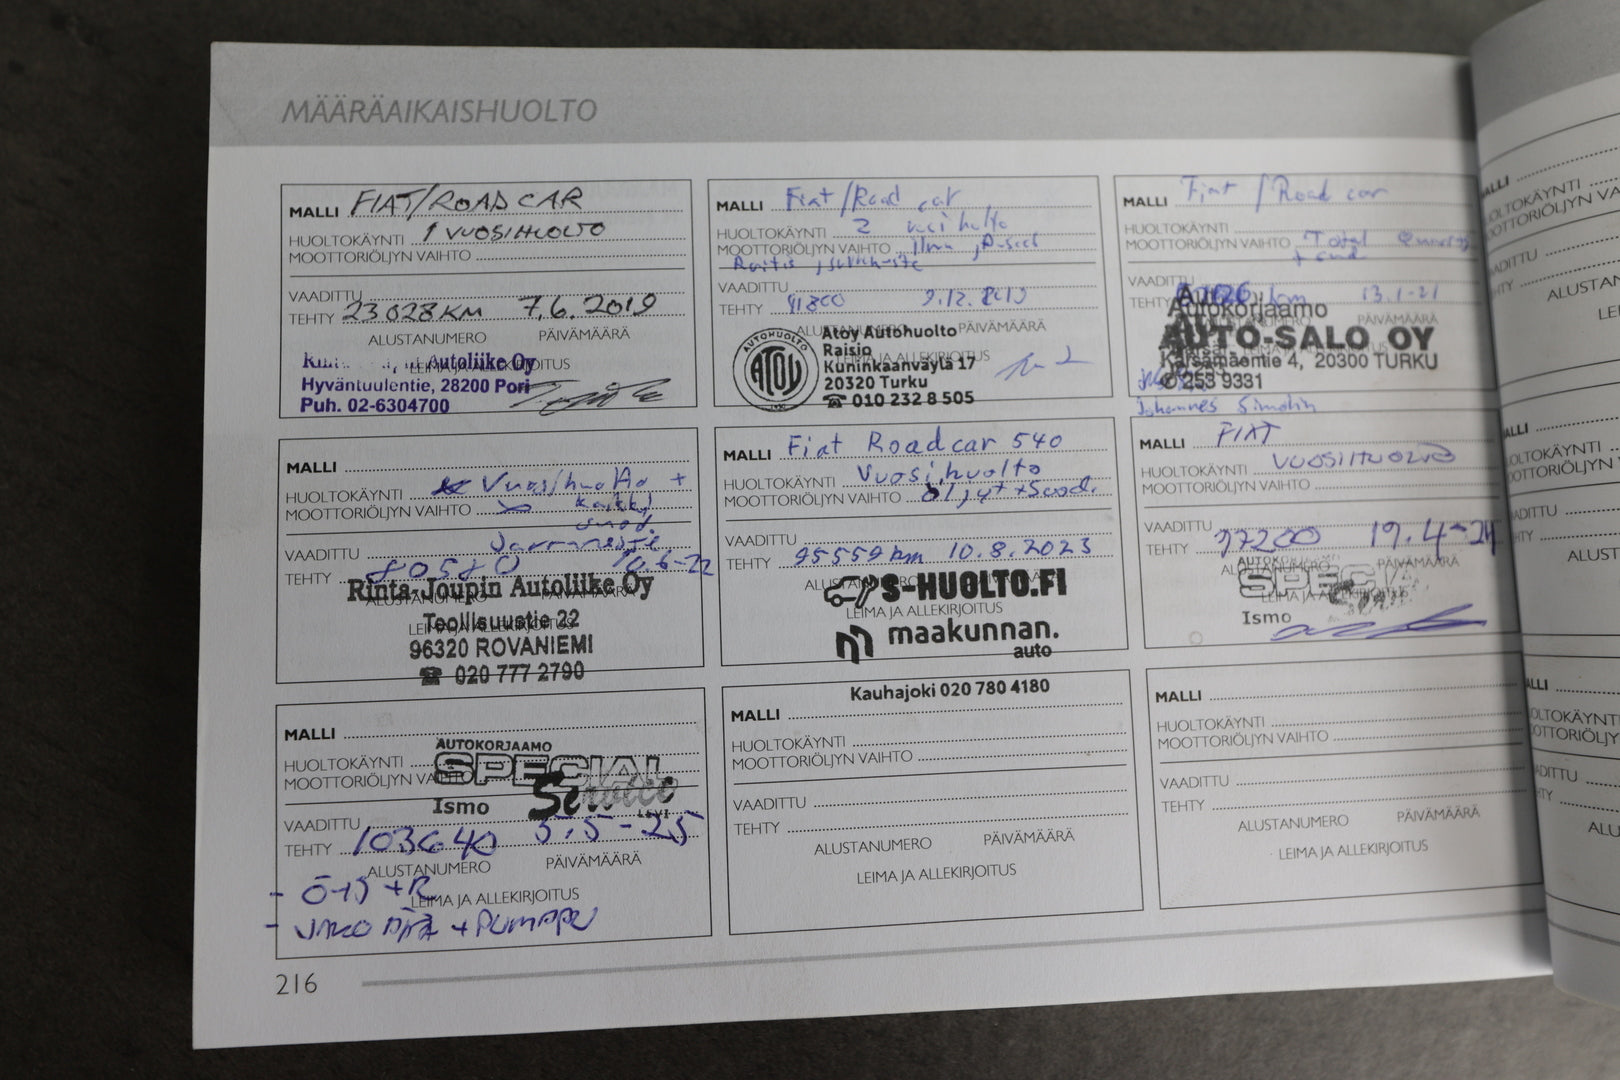 MÄÄRÄAIKAISHUOLTO
MALLI FIAT/ROAD CAR
HUOLTOKÄYNTI 1 VUOSIHUOLTO
MOOTTORIÖLJYN VAIHTO
VAADITTU
TEHTY 23028 KM 7.6.2019
ALUSTANUMERO PÄIVÄMÄÄRÄ
LEIMA JA ALLEKIRJOITUS
Autoliike Oy
Hyväntuulentie, 28200 Pori
Puh. 02-6304700
MALLI Fiat/Road car
HUOLTOKÄYNTI 2
MOOTTORIÖLJYN VAIHTO
VAADITTU
TEHTY 41800 9.12.2019
ALUSTANUMERO PÄIVÄMÄÄRÄ
LEIMA JA ALLEKIRJOITUS
AUTOHUOLTO
ATOY
Atoy Autohuolto
Raisio
Kuninkaanväylä 17
20320 Turku
☎ 010 232 8 505
MALLI Fiat / Road car
HUOLTOKÄYNTI
MOOTTORIÖLJYN VAIHTO Total
VAADITTU
TEHTY km 13.1-21
ALUSTANUMERO PÄIVÄMÄÄRÄ
Autokorjaamo
AUTO-SALO OY
4, 20300 TURKU
✆ 253 9331
Johannes
MALLI
HUOLTOKÄYNTI Vuosihuolto +
MOOTTORIÖLJYN VAIHTO kaikki
suod.
VAADITTU Jarruneste
TEHTY 80580 10.6-22
ALUSTANUMERO PÄIVÄMÄÄRÄ
LEIMA JA ALLEKIRJOITUS
Rinta-Joupin Autoliike Oy
Teollisuustie 22
96320 ROVANIEMI
☎ 020 777 2790
MALLI Fiat Roadcar 540
HUOLTOKÄYNTI Vuosihuolto
MOOTTORIÖLJYN VAIHTO Öljyt + Suod.
VAADITTU
TEHTY 95559 km 10.8.2023
LEIMA JA ALLEKIRJOITUS
S-HUOLTO.FI
maakunnan.
auto
Kauhajoki 020 780 4180
MALLI FIAT
HUOLTOKÄYNTI VUOSIHUOLTO
MOOTTORIÖLJYN VAIHTO
VAADITTU
TEHTY 97200 19.4-24
ALUSTANUMERO PÄIVÄMÄÄRÄ
LEIMA JA ALLEKIRJOITUS
Ismo
MALLI
HUOLTOKÄYNTI
MOOTTORIÖLJYN VAIHTO
AUTOKORJAAMO
SPECIAL
Service
LEVI
Ismo
VAADITTU
TEHTY 103640 5.5-25
ALUSTANUMERO PÄIVÄMÄÄRÄ
LEIMA JA ALLEKIRJOITUS
MALLI
HUOLTOKÄYNTI
MOOTTORIÖLJYN VAIHTO
VAADITTU
TEHTY
ALUSTANUMERO PÄIVÄMÄÄRÄ
LEIMA JA ALLEKIRJOITUS
MALLI
HUOLTOKÄYNTI
MOOTTORIÖLJYN VAIHTO
VAADITTU
TEHTY
ALUSTANUMERO PÄIVÄMÄÄRÄ
LEIMA JA ALLEKIRJOITUS
216